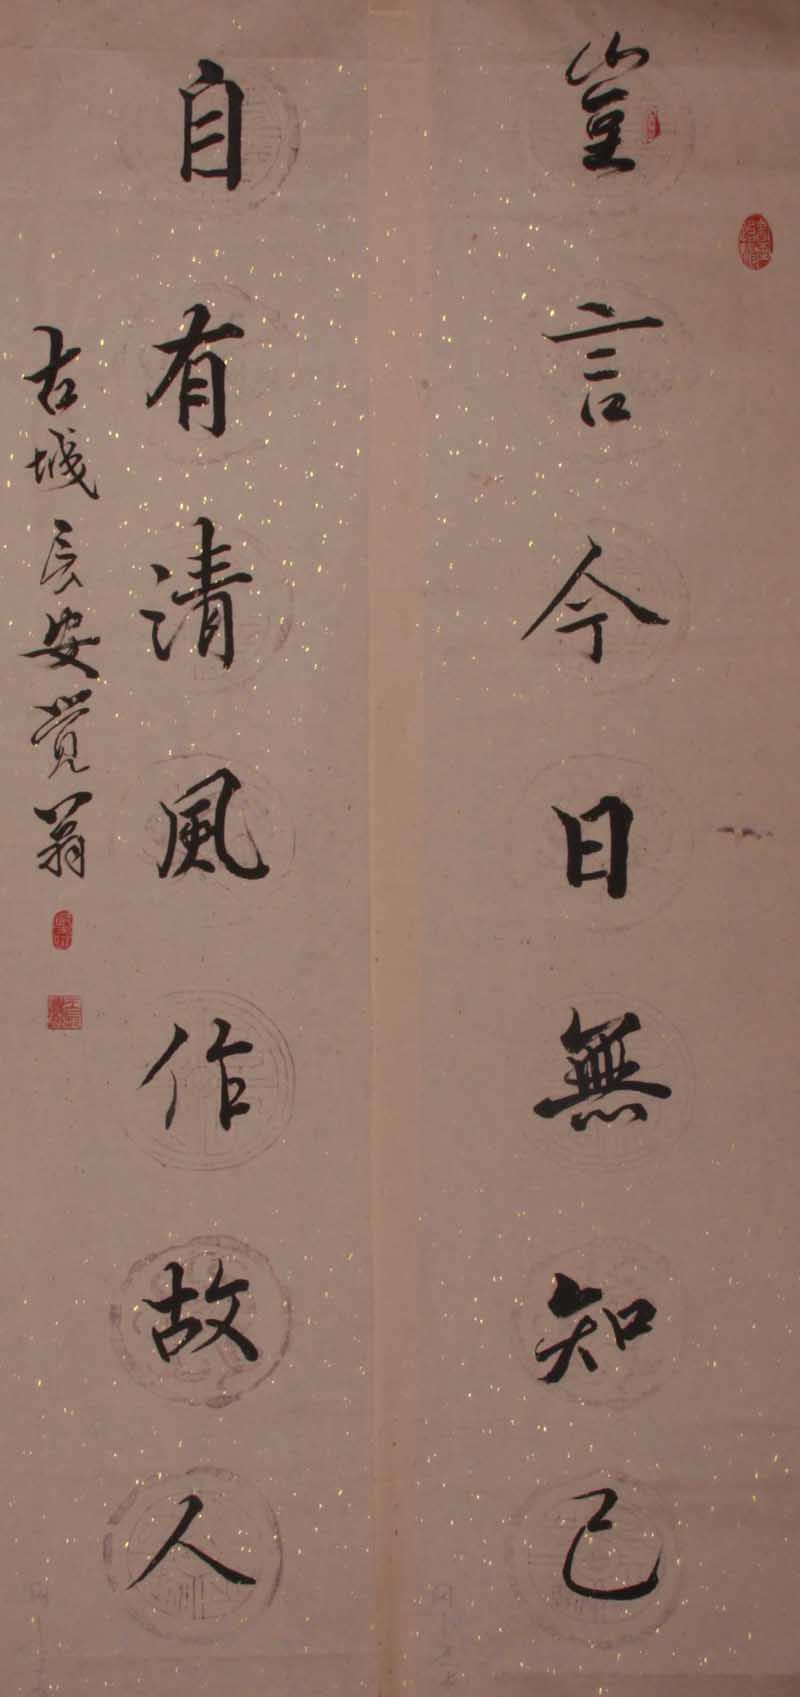 豈言今日無知己
自有清風作故人
古城長安覺翁